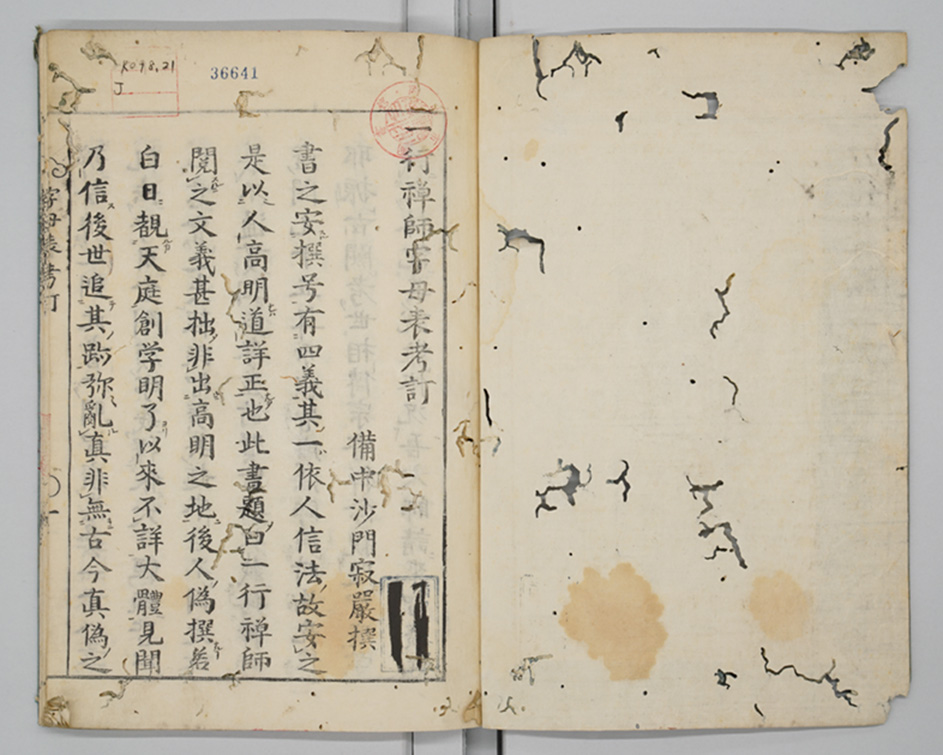 K09.8.21
J
36641
一行禅師字母表考訂
備中沙門寂嚴撰
書之安撰号有四義其一依人信法故安之
是以人高明道詳正也此書題曰一行禅師
閲之文義甚拙非出高明之地後人偽撰若
白日覩天庭創学明了以來不詳大體見聞
乃信後世追其跡弥亂真非無古今真偽之
字母表考訂
一